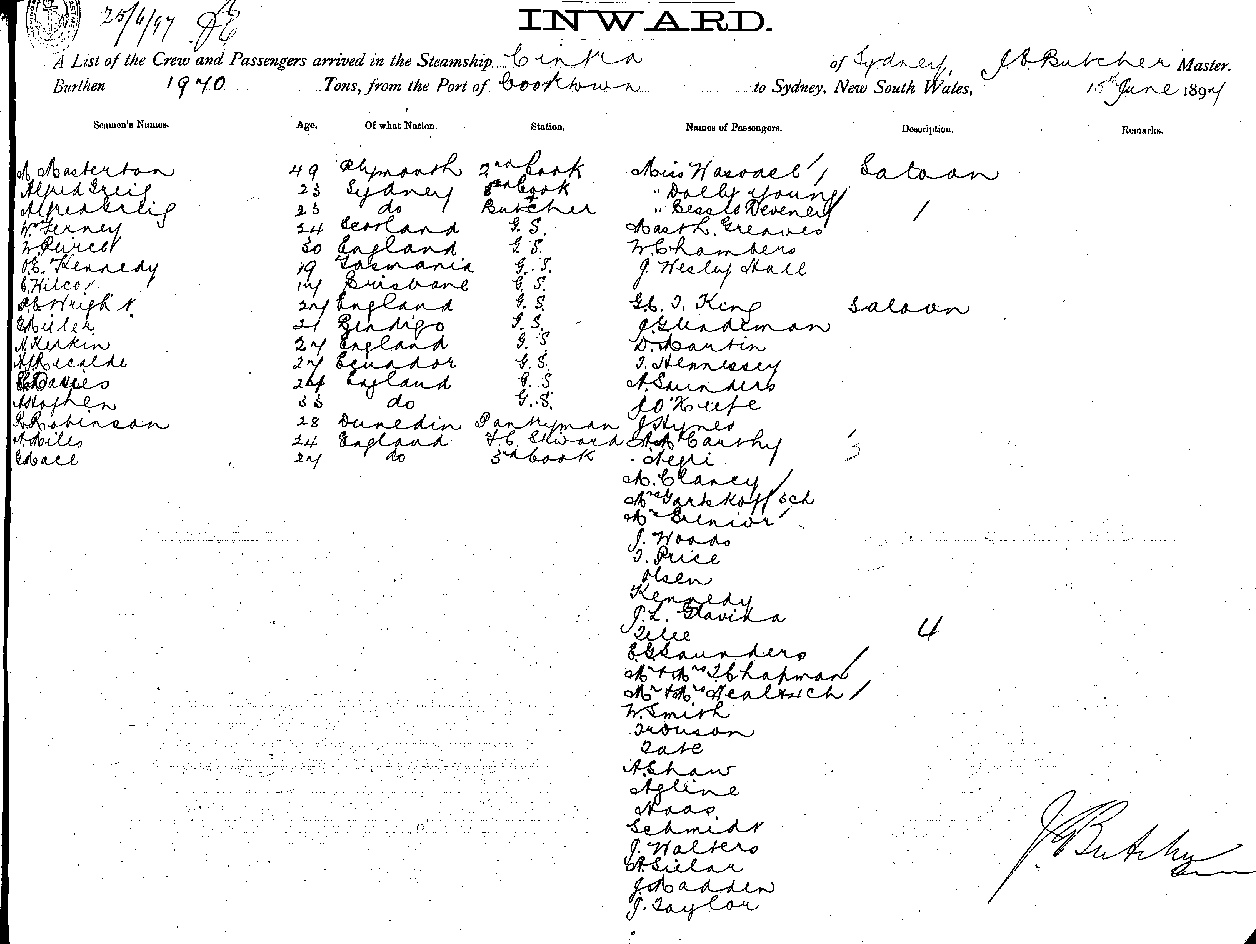 25/6/97
INWARD.
A List of the Crew and Passengers arrived in the Steamship Cintra of Sydney, J Butcher Master.
Burthen 1970 Tons, from the Port of Cooktown to Sydney, New South Wales, 15th June 1897
Seamen's Names. Age. Of what Nation. Station. Names of Passengers. Description. Remarks.
A Masterton 49 Plymouth 2nd Cook Miss / Saloon
Alfred Greig 23 Sydney Cook " Dolly Young /
Alfred Greig 23 do Butcher " Bessie Deveney / /
W. Ferney 24 Scotland G.S. Mast. Greaves
W. 30 England G.S. W Chambers
Kennedy 19 Tasmania G.S. J. Wesley Hall
Wilcox 17 Brisbane G.S.
Wright 27 England G.S. King Saloon
21 Bendigo G.S.
Kerkin 27 England G.S. D. Martin
Recalde 27 Ecuador G.S. T. Hennessey
Davies 24 England G.S. A Saunders
33 do G.S. J O'Keefe
R Robinson 28 Dunedin Pantryman J Hynes
24 England Steward McCarthy
27 do 3rd Cook Negri
M. Clancy /
Mr
J. Woods
T. Price
Olsen
Kennedy
J.L. Glavika
4
Saunders /
Mr & Mrs T Chapman /
Mr & Mrs /
W. Smith
Tate
A. Shaw
Agline
Haas
Schmidt
J. Walters
J. Madden
J. Taylor
J Butcher